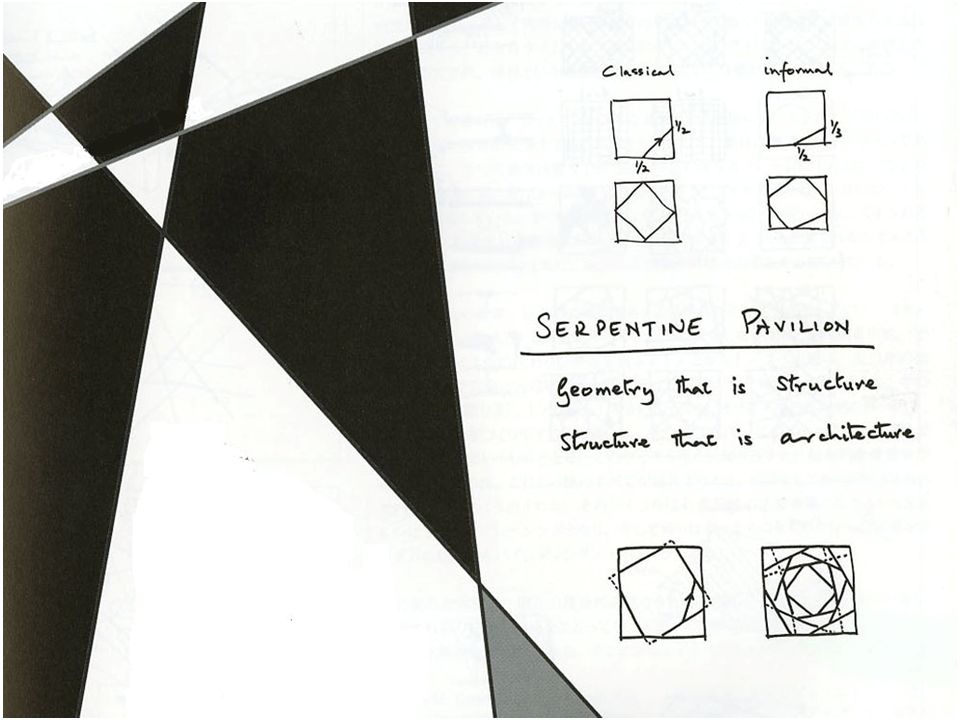 Classical informal
1/2 1/3
1/2 1/2
SERPENTINE PAVILION
Geometry that is Structure
Structure that is architecture